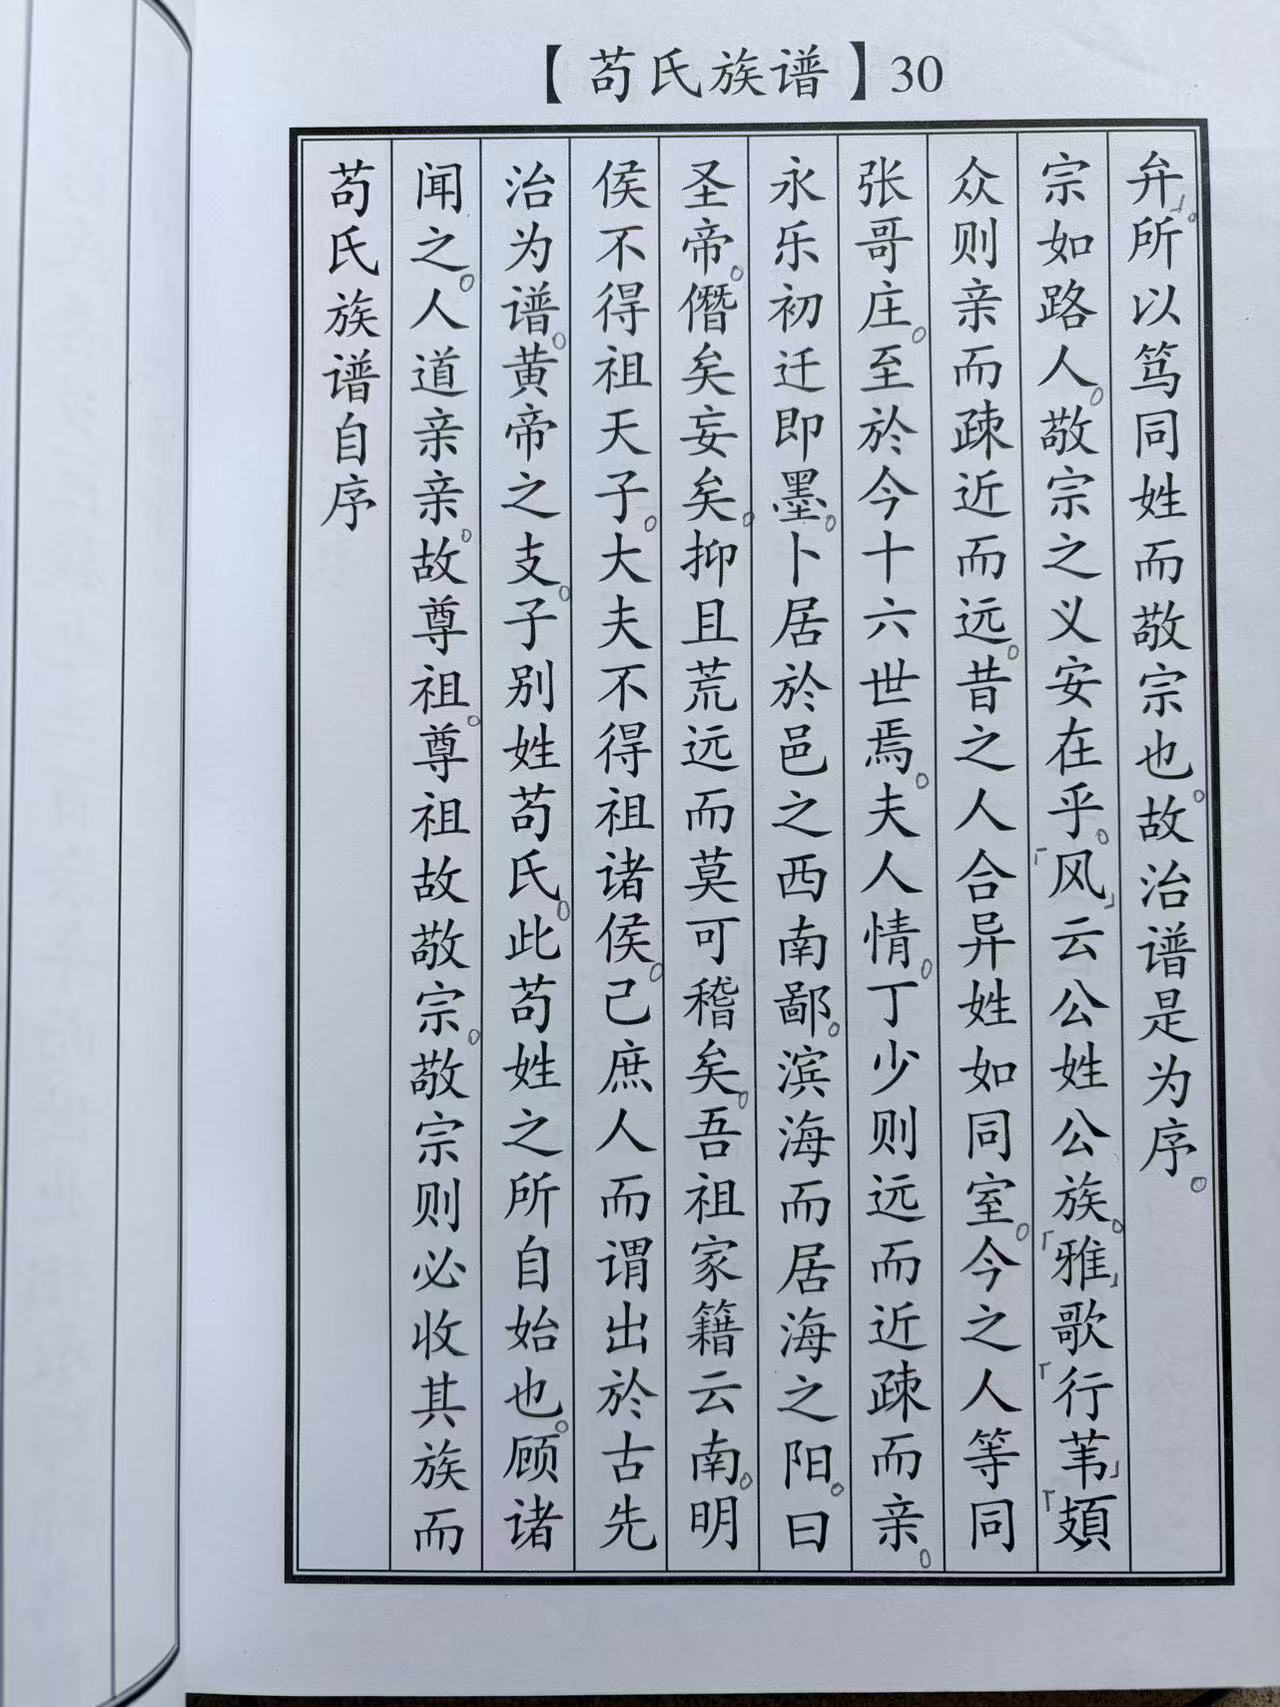 【苟氏族谱】30
苟氏族谱自序
闻之。人道亲亲。故尊祖。尊祖故敬宗。敬宗则必收其族而
治为谱。黄帝之支。子别姓苟氏。此苟姓之所自始也。顾诸
侯不得祖天子。大夫不得祖诸侯。己庶人而谓出於古先
圣帝。僭矣妄矣。抑且荒远而莫可稽矣。吾祖家籍云南。明
永乐初迁即墨。卜居於邑之西南鄙。滨海而居海之阳。曰
张哥庄。至於今十六世焉。夫人情。丁少则远而近疎而亲。
众则亲而疎近而远。昔之人合异姓如同室。今之人等同
宗如路人。敬宗之义安在乎。「风」云公姓公族。「雅」歌「行苇」「頍
弁」。所以笃同姓而敬宗也。故治谱是为序。